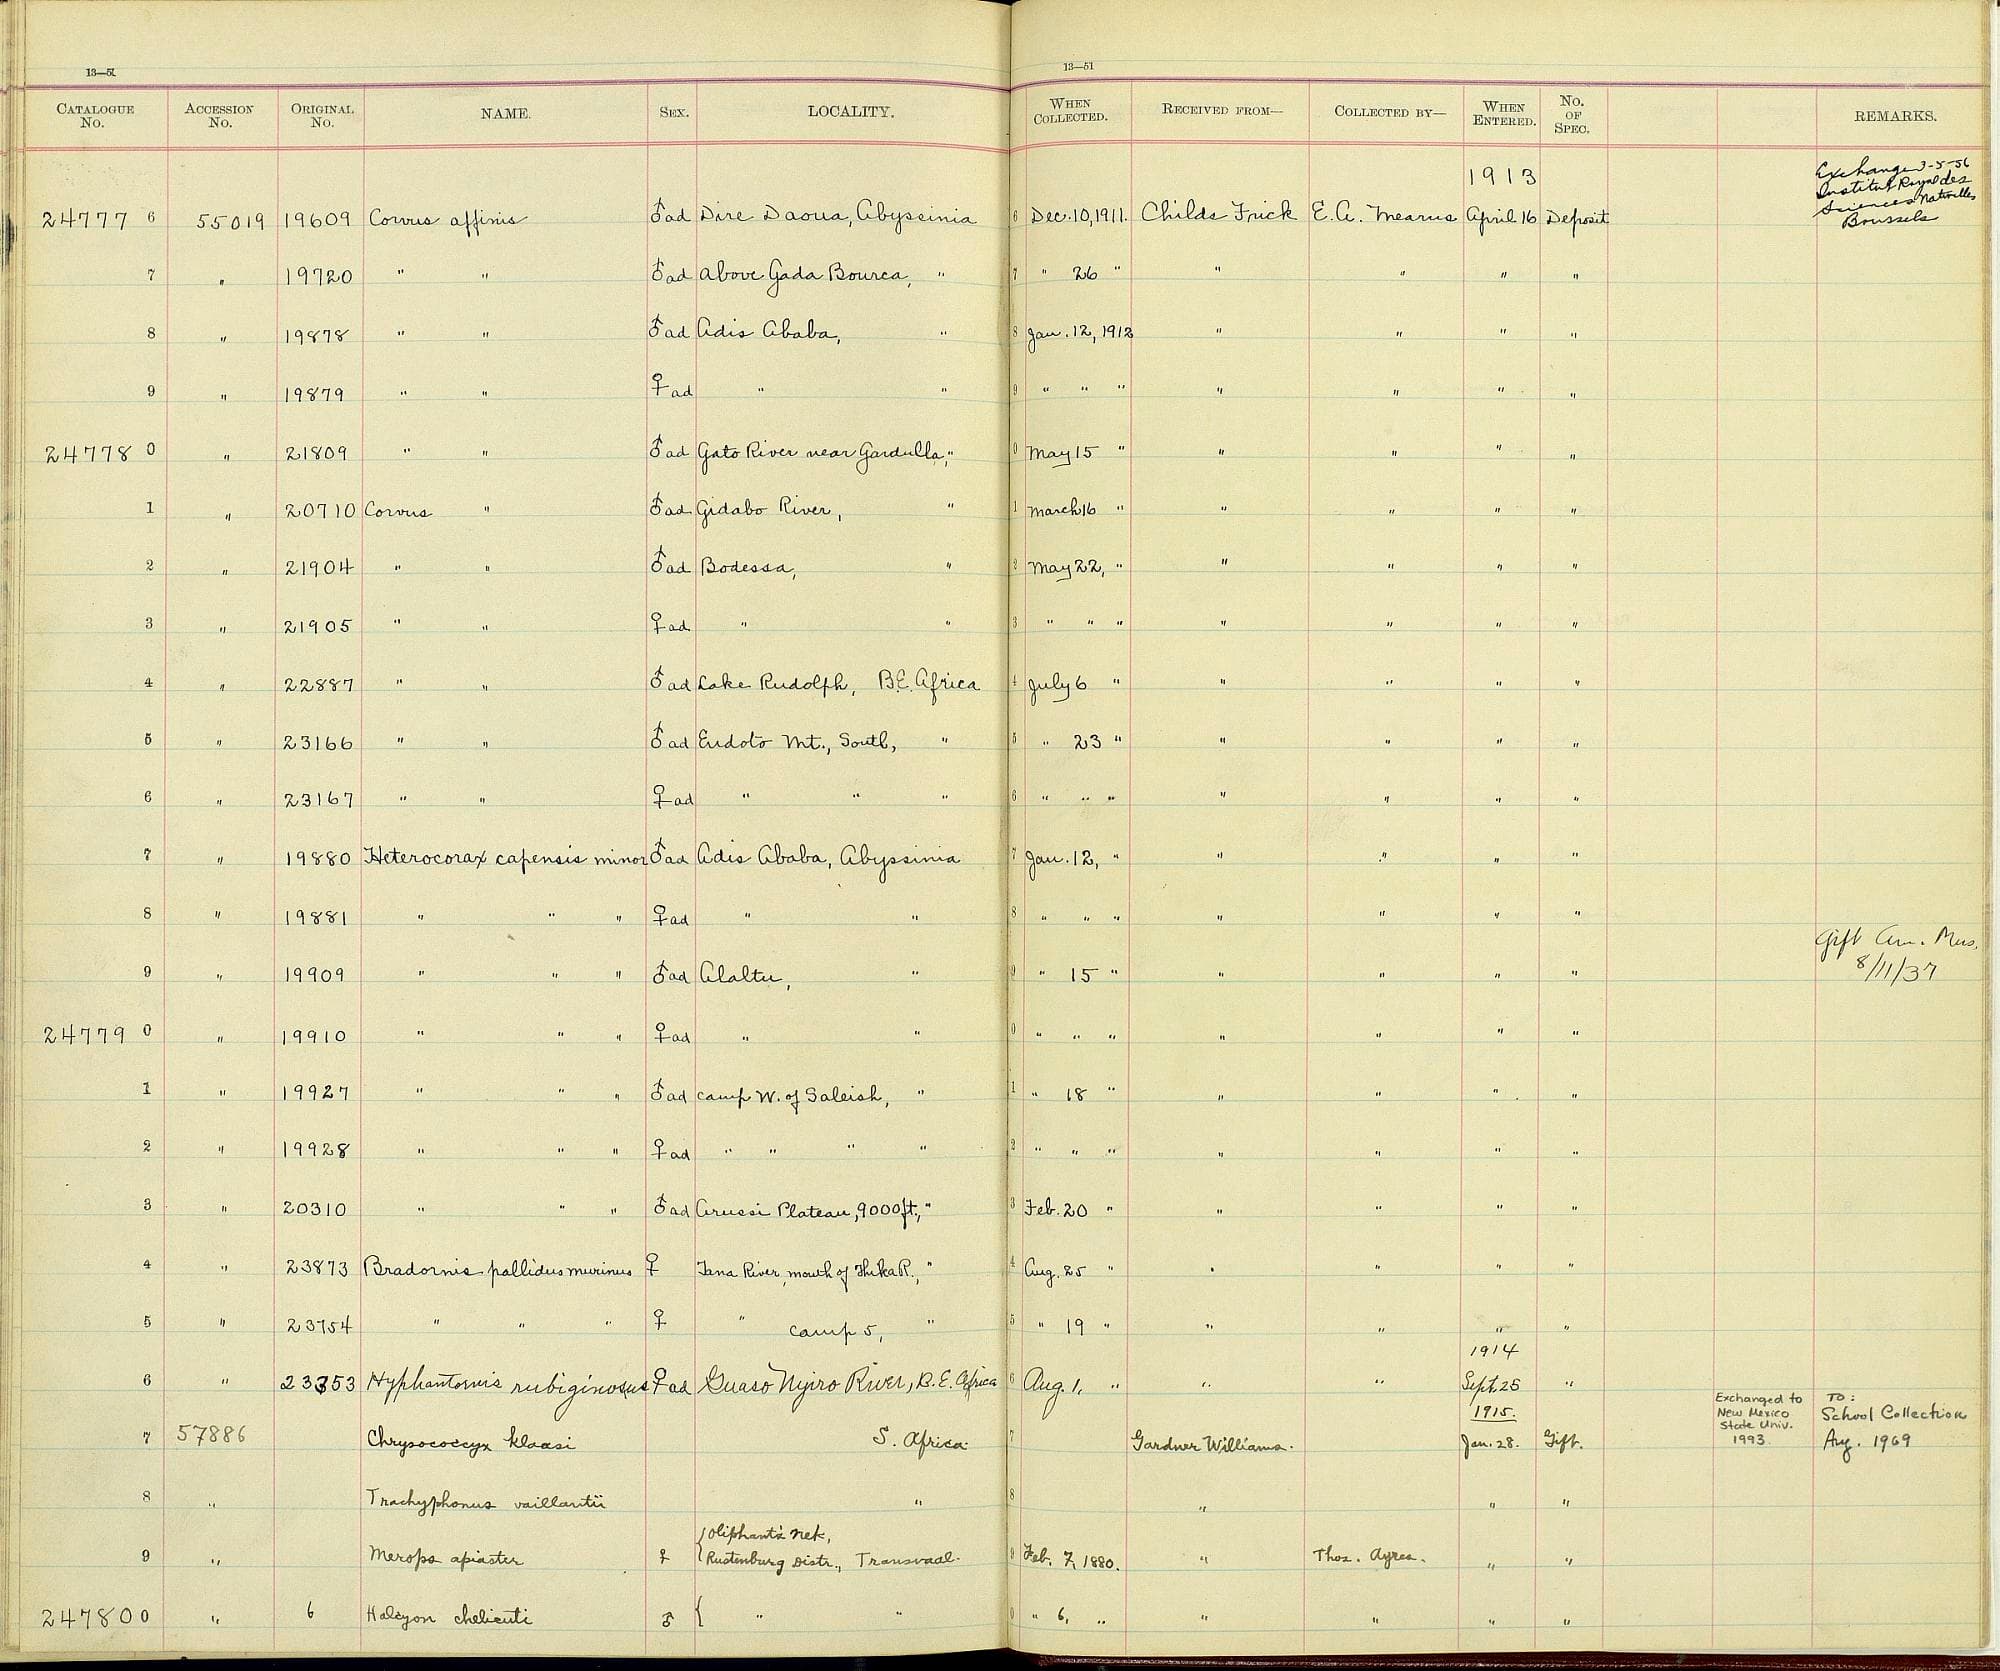 13—51 13—51
CATALOGUE No. ACCESSION No. ORIGINAL No. NAME. SEX. LOCALITY. WHEN COLLECTED. RECEIVED FROM— COLLECTED BY— WHEN ENTERED. No. OF SPEC. REMARKS.
1913 Exchange 3-5-56
Institut Royal des
Sciences Naturelles
Brussels
24777 6 55019 19609 Corvus affinis ♂ad Dire Daoua, Abyssinia 6 Dec. 10, 1911. Childs Frick E. A. Mearns April 16 Deposit
7 " 19720 " " ♂ad above Gada Bourca, " 7 " 26 " " " " "
8 " 19878 " " ♂ad Adis Ababa, " 8 Jan. 12, 1912 " " " "
9 " 19879 " " ♀ad " " 9 " " " " " " "
24778 0 " 21809 " " ♂ad Gato River near Gardulla, " 0 May 15 " " " " "
1 " 20710 Corvus " ♂ad Gidabo River, " 1 March 16 " " " " "
2 " 21904 " " ♂ad Bodessa, " 2 May 22, " " " " "
3 " 21905 " " ♀ad " " 3 " " " " " " "
4 " 22887 " " ♂ad Lake Rudolph, B.E. Africa 4 July 6 " " " " "
5 " 23166 " " ♂ad Endoto Mt., South, " 5 " 23 " " " " "
6 " 23167 " " ♀ad " " " 6 " " " " " " "
7 " 19880 Heterocorax capensis minor ♂ad Adis Ababa, Abyssinia 7 Jan. 12, " " " " "
8 " 19881 " " " ♀ad " " 8 " " " " " " "
Gift Am. Mus.
8/11/37
9 " 19909 " " " ♂ad Alaltu, " 9 " 15 " " " " "
24779 0 " 19910 " " " ♀ad " " 0 " " " " " " "
1 " 19927 " " " ♂ad camp W. of Saleish, " 1 " 18 " " " " "
2 " 19928 " " " ♀ad " " " " 2 " " " " " " "
3 " 20310 " " " ♂ad Arussi Plateau, 9000 ft., " 3 Feb. 20 " " " " "
4 " 23873 Bradornis pallidus murinus ♀ Tana River, mouth of Thika R., " 4 Aug. 25 " " " " "
5 " 23754 " " " ♀ " camp 5, " 5 " 19 " " " " "
1914
6 " 23353 Hyphantornis rubiginosus ♀ad Guaso Nyiro River, B.E. Africa 6 Aug. 1, " " " Sept. 25 "
1915. Exchanged to New Mexico State Univ. 1993. To: School Collection Aug. 1969
7 57886 Chrysococcyx klaasi S. Africa. 7 Gardner Williams. Jan. 28. Gift.
8 " Trachyphonus vaillantii " 8 " " "
9 " Merops apiaster ♀ { Oliphant's Nek,
Rustenburg Distr., Transvaal. 9 Feb. 7, 1880. " Thos. Ayres. " "
24780 0 " 6 Halcyon chelicuti ♂ { " " 0 " 6, " " " " "